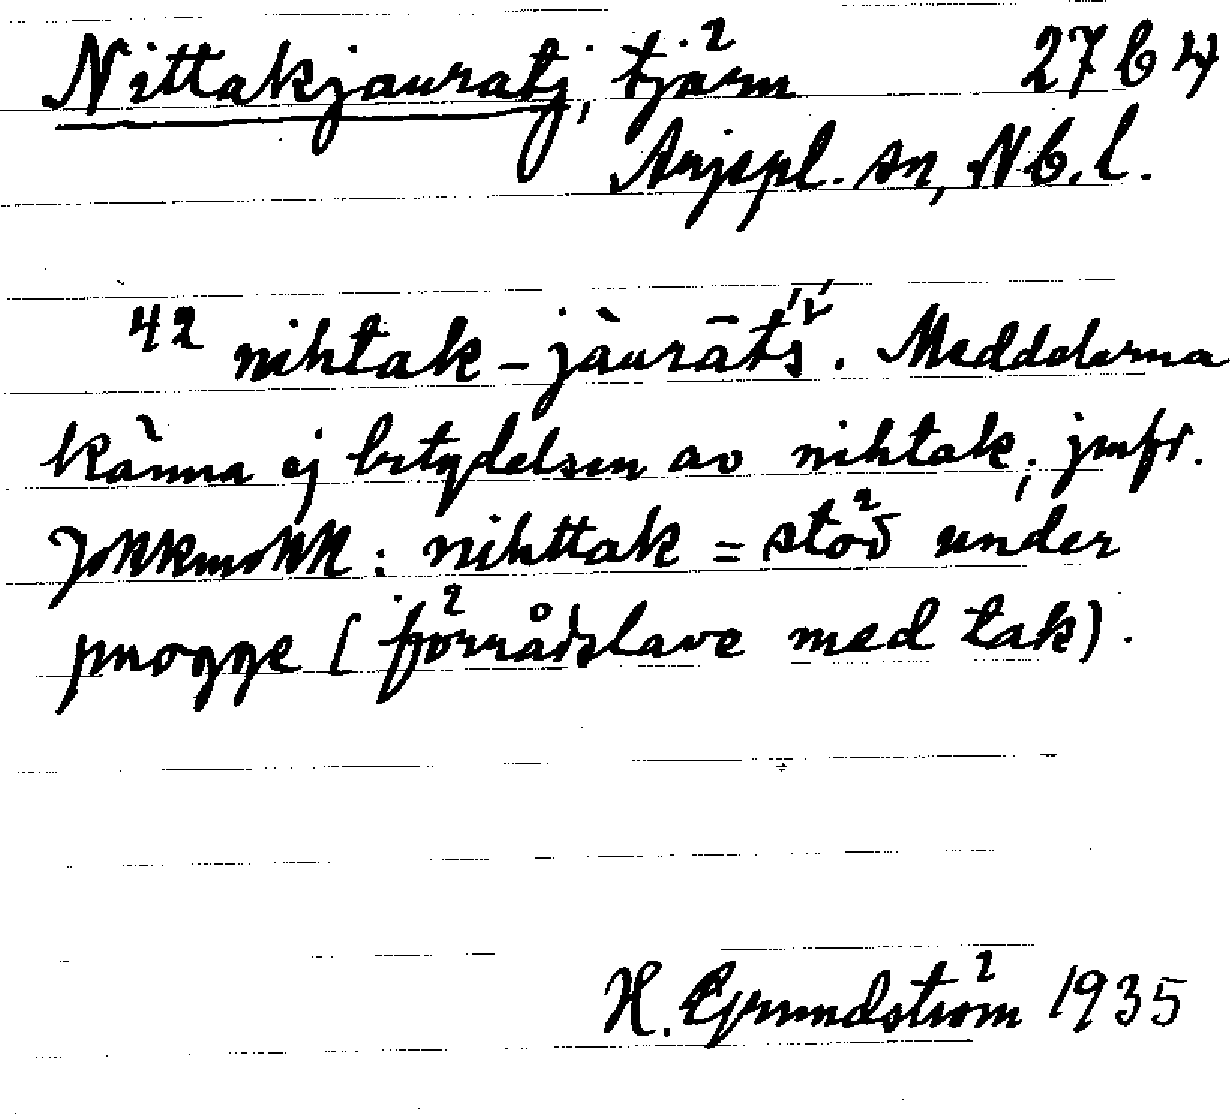 Nittakjauratj, tjärn 27 b 4
Arjepl. sn, Nb. l.
42 nihtak-jàurāts̀́. Meddelarna
känna ej betydelsen av nihtak; jmfr.
Jokkmokk: nihttak = stöd under
puogge (förrådslave med tak).
H. Grundström 1935